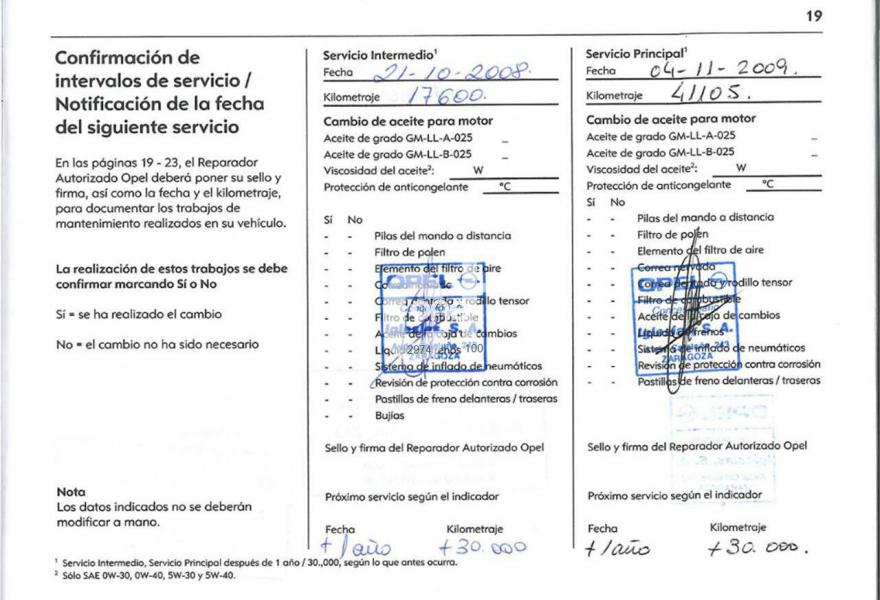 19
Confirmación de
intervalos de servicio /
Notificación de la fecha
del siguiente servicio
En las páginas 19 - 23, el Reparador
Autorizado Opel deberá poner su sello y
firma, así como la fecha y el kilometraje,
para documentar los trabajos de
mantenimiento realizados en su vehículo.
La realización de estos trabajos se debe
confirmar marcando Sí o No
Sí = se ha realizado el cambio
No = el cambio no ha sido necesario
Nota
Los datos indicados no se deberán
modificar a mano.
Servicio Intermedio¹
Fecha 21-10-2008.
Kilometraje 17600.
Cambio de aceite para motor
Aceite de grado GM-LL-A-025 _
Aceite de grado GM-LL-B-025 _
Viscosidad del aceite²: W
Protección de anticongelante °C
Sí No
- - Pilas del mando a distancia
- - Filtro de polen
- - Elemento del filtro de aire
- - Correa
- - Correa dentada y rodillo tensor
- - Filtro de combustible
- - Aceite de la caja de cambios
- - 2974 100
- - Sistema de inflado de neumáticos
- - Revisión de protección contra corrosión
- - Pastillas de freno delanteras / traseras
- - Bujías
OPEL
S. A.
243
ZARAGOZA
Sello y firma del Reparador Autorizado Opel
Próximo servicio según el indicador
Fecha Kilometraje
+ 1 año +30.000
Servicio Principal¹
Fecha 04-11-2009.
Kilometraje 41105.
Cambio de aceite para motor
Aceite de grado GM-LL-A-025 _
Aceite de grado GM-LL-B-025 _
Viscosidad del aceite²: W
Protección de anticongelante °C
Sí No
- - Pilas del mando a distancia
- - Filtro de polen
- - Elemento del filtro de aire
- - Correa nervada
- - Correa dentada y rodillo tensor
- - Filtro de combustible
- - Aceite de la caja de cambios
- - Líquido de frenos
- - Sistema de inflado de neumáticos
- - Revisión de protección contra corrosión
- - Pastillas de freno delanteras / traseras
OPEL
S. A.
243
ZARAGOZA
Sello y firma del Reparador Autorizado Opel
Próximo servicio según el indicador
Fecha Kilometraje
+ 1 año +30.000.
¹ Servicio Intermedio, Servicio Principal después de 1 año / 30.,000, según lo que antes ocurra.
² Sólo SAE 0W-30, 0W-40, 5W-30 y 5W-40.